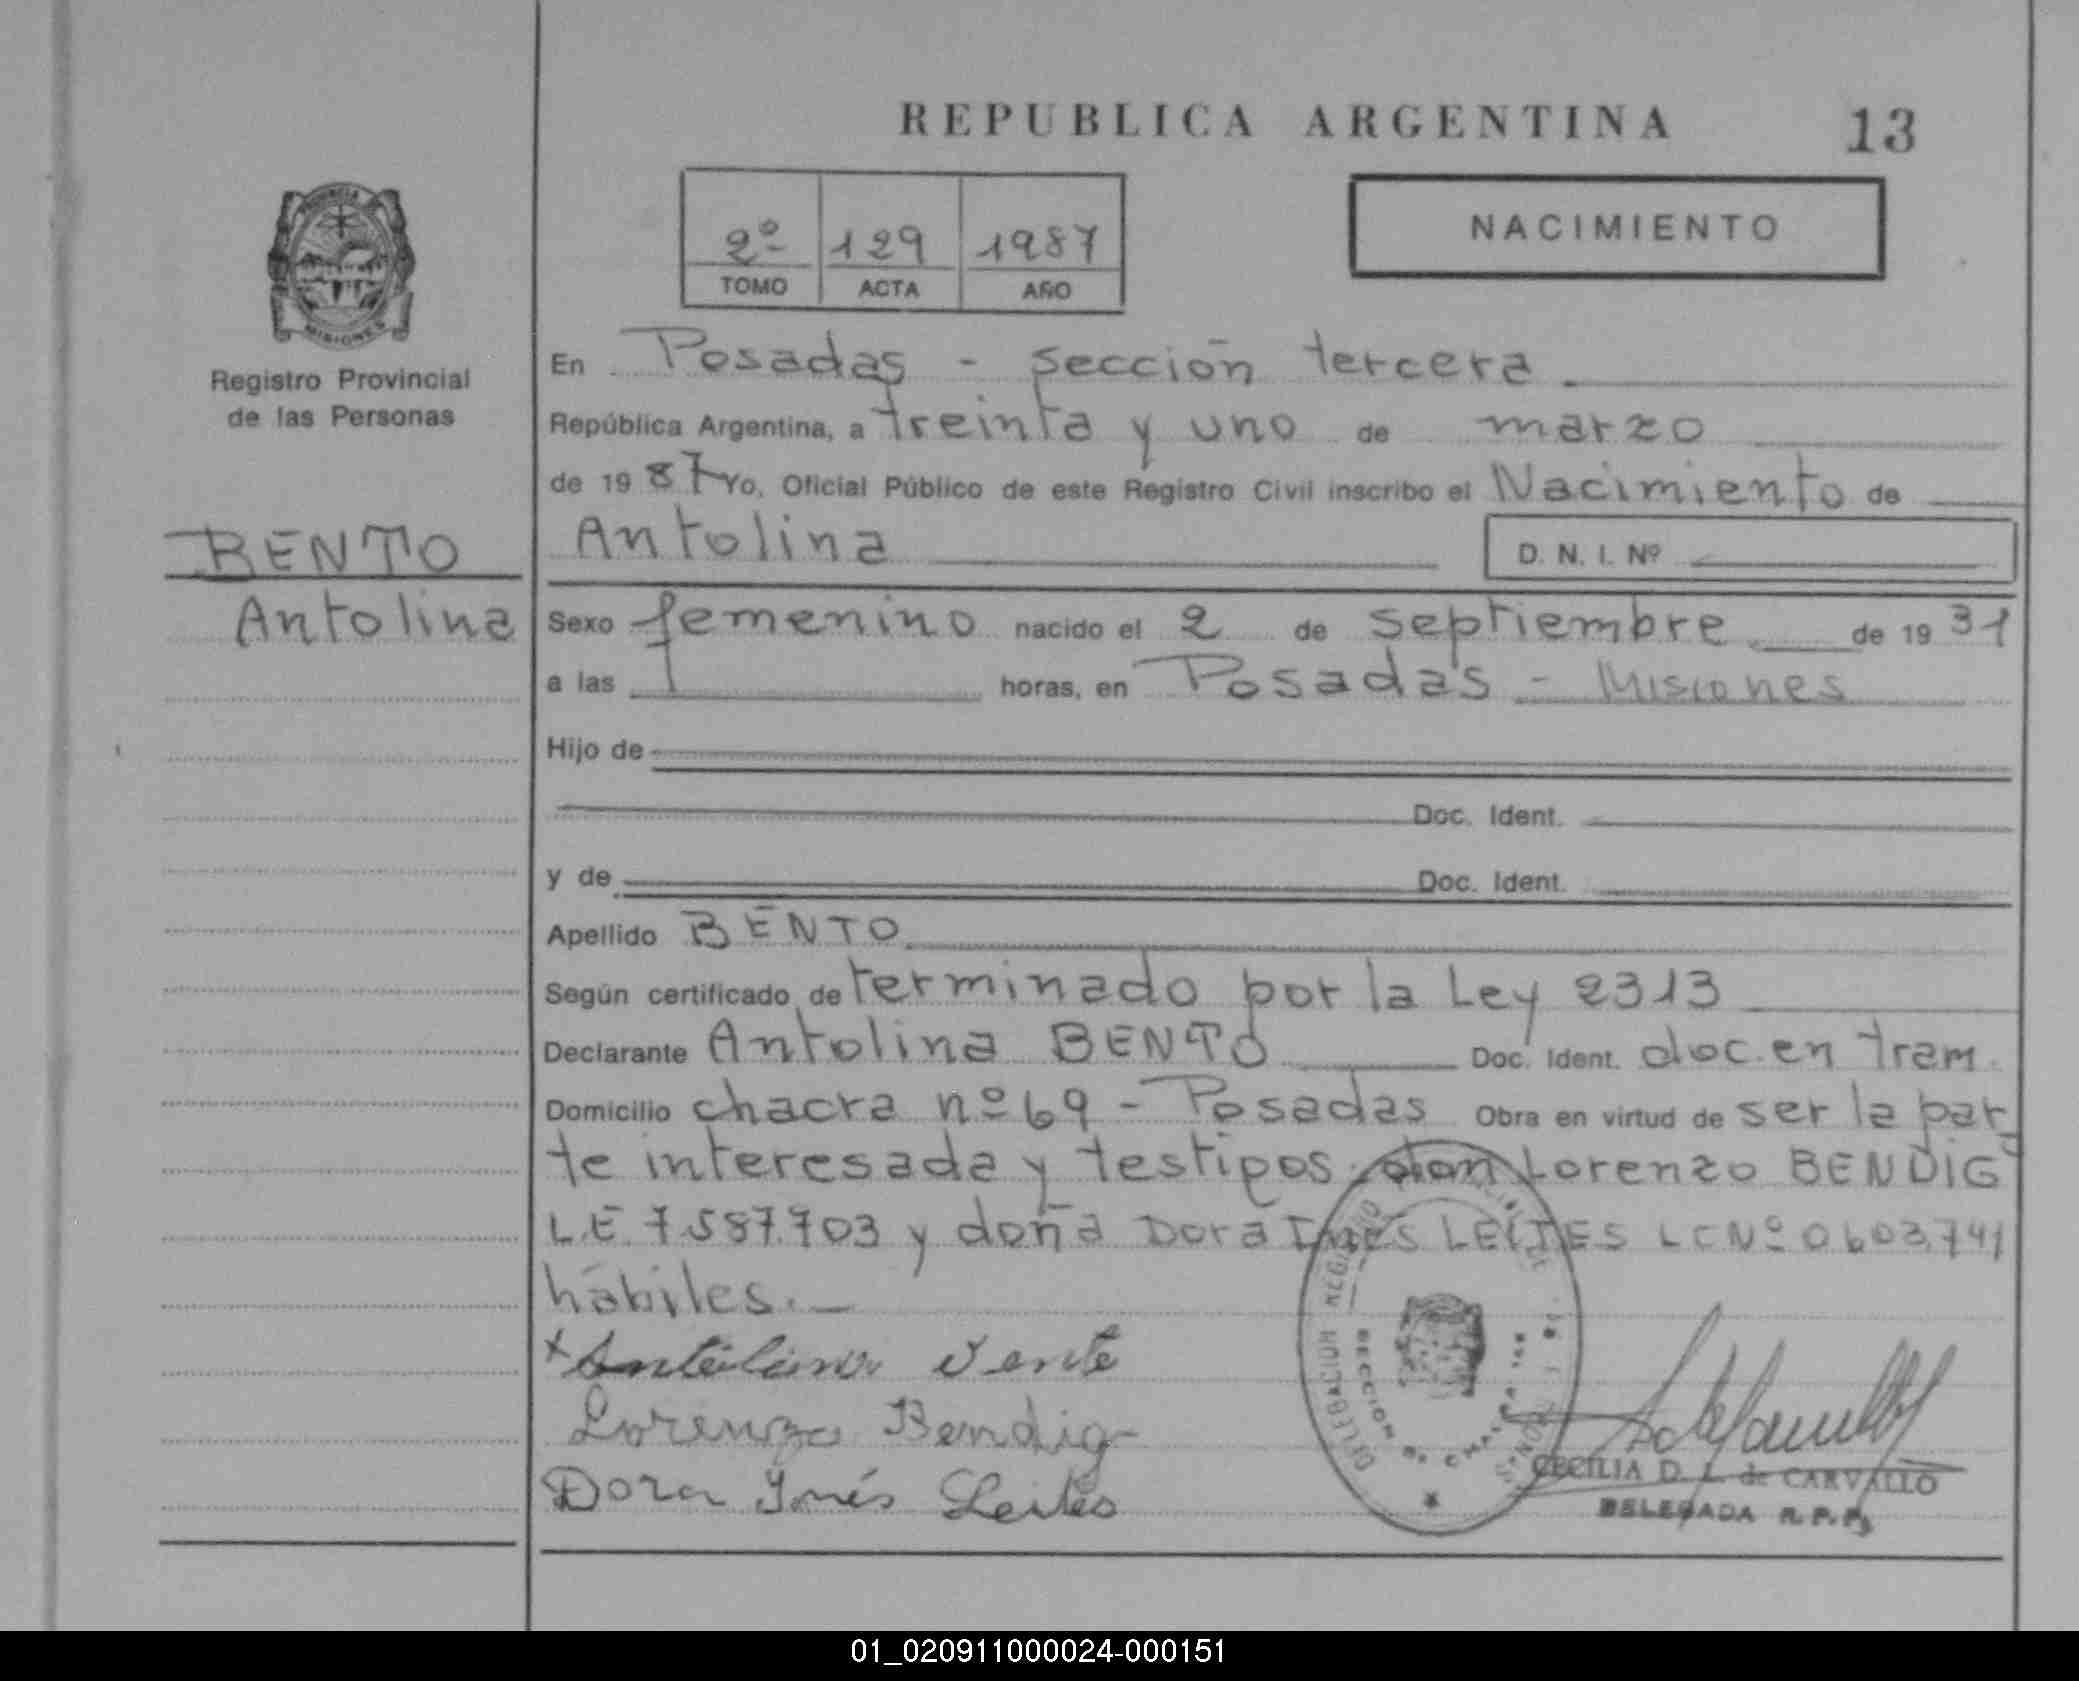 REPUBLICA ARGENTINA 13
2º 129 1987
TOMO ACTA AÑO
NACIMIENTO
PROVINCIA
MISIONES
Registro Provincial
de las Personas
BENTO
Antolina
En Posadas - sección tercera
República Argentina, a treinta y uno de marzo
de 1987 Yo, Oficial Público de este Registro Civil inscribo el Nacimiento de
Antolina D. N. I. Nº
Sexo femenino nacido el 2 de septiembre de 1931
a las horas, en Posadas - Misiones
Hijo de
Doc. Ident.
y de Doc. Ident.
Apellido BENTO
Según certificado de terminado por la Ley 2313
Declarante Antolina BENTO Doc. Ident. doc. en tram.
Domicilio chacra nº 69 - Posadas Obra en virtud de ser la par
te interesada y testigos don Lorenzo BENDIG
L.E. 7.587.703 y doña Dora Inés LEITES LC Nº 0.603.741
hábiles.-
x Antolina
Lorenzo Bendig
Dora Inés Leites
DELEGACION
CECILIA D. L. de CARVALLO
DELEGADA R.P.P.
01_020911000024-000151